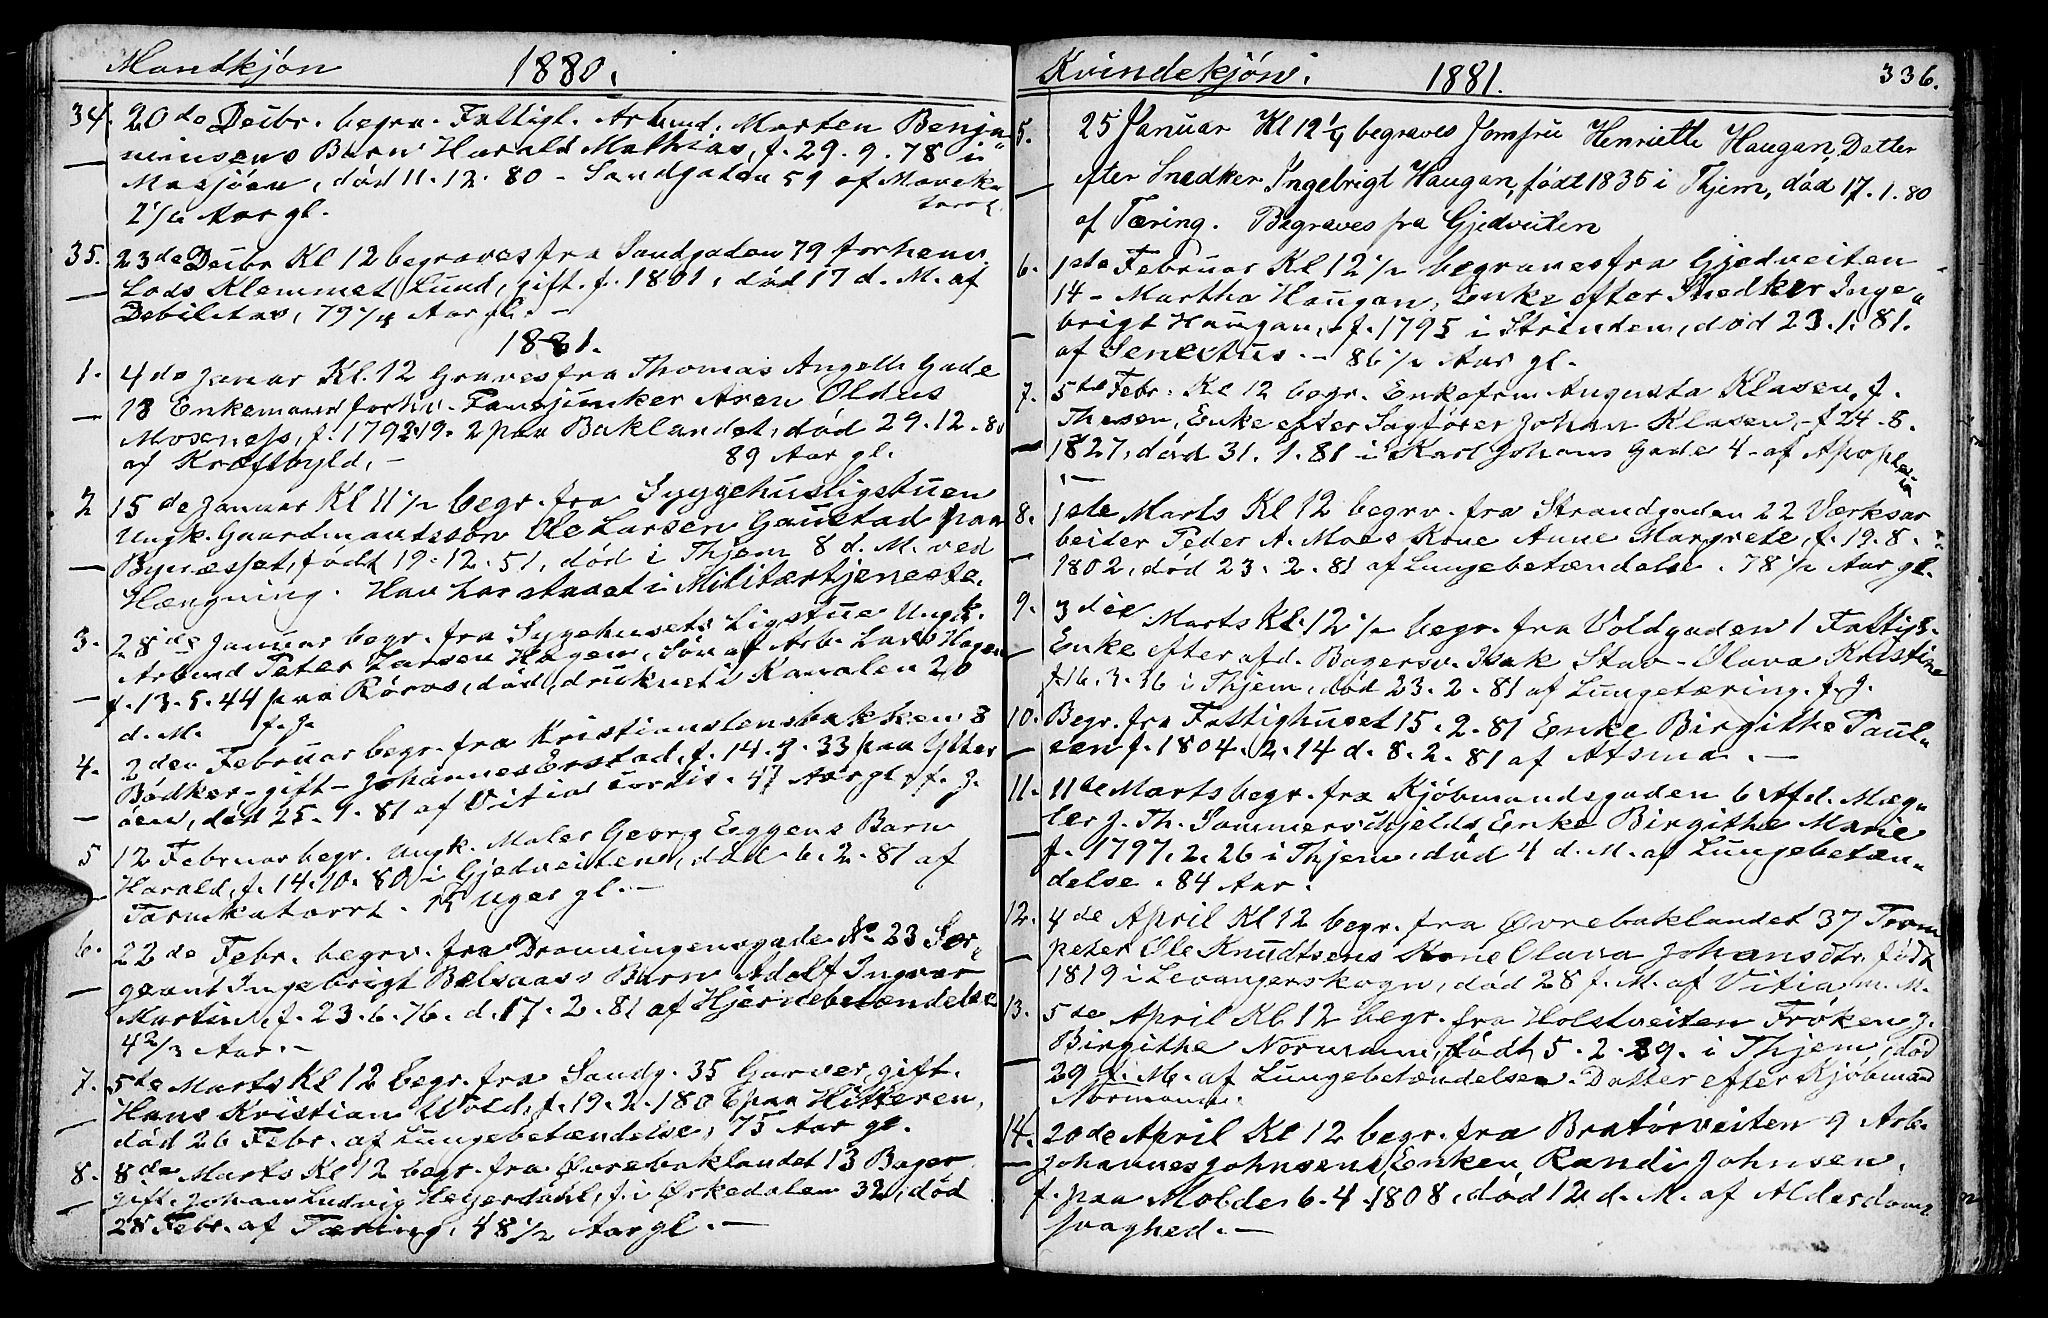 Mandkjön 1880.
34. 20de Decbr. begrv. Fattigl. Arbmd. Marten Benja-
minsens Barn Harald Mathias, f. 29. 9. 78 i
Mosjöen, död 11. 12. 80 - Sandgaden 59 af Mavekatarrh.
2 1/4 Aar gl.
35. 23de Decbr Kl 12 begraves fra Sandgaden 79 forhenv.
Lods Klemmet Lund, gift. f. 1801, död 17 d. M. af
Debilitas, 79 1/4 Aar gl. -
1881.
1. 4de Januar Kl. 12 Graves fra Thomas Angells Gade
18 Enkemand forhv. Fanejunker Aren Oldus
Mosness, f. 1792. 19. 2 paa Baklandet, död 29. 12. 80
af Kræftbyld. - 89 Aar gl.
2 15de Januar Kl 11 1/2 begr. fra Sygehusligstuen
Ungk. Gaardmandssön Ole Larsen Gaustad paa
Bynæsset, födt 19. 12. 51, död i Thjem 8 d. M. ved
Hængning. Han har staaet i Militærtjeneste.
3. 28de Januar begr. fra Sygehusets Ligstue Ungk.
Arbmd Peter Larsen Hagen, Sön af Arb. Lars Hagen
f. 13. 5. 44 paa Röros, död, druknet i Kanalen 20
d. M. f. J.
4. 2den Februar begr. fra Kristianstensbakken 8
Bödker - gift - Johannes Erstad, f. 14. 9. 33 paa Ytter
öen, död 25. 1. 81 af Vitia cordis. 47 Aar gl. f. J.
5 12 Februar begr. Ungk. Maler Georg Eggens Barn
Harald, f. 14. 10. 80 i Gjedveiten, död 6. 2. 81 af
Tarmkatarrh. 15 Uger gl. -
6. 22de Febr. begrv. fra Dronningensgade No 23 Ser-
geant Ingebrigt Belsaas's Barn Adolf Ingvar
Martin, f. 23. 6. 76. d. 17. 2. 81 af Hjernebetændelse
4 2/3 Aar. -
7. 5te Marts Kl 12 begr. fra Sandg. 35 Garver, gift.
Hans Kristian Wold, f. 19. 2. 1806 paa Hitteren,
död 26 Febr. af Lungebetændelse, 75 Aar gl.
8. 8de Marts Kl 12 begr. fra Øvrebaklandet 13 Bager
gift. Johan Ludvig Heyerdahl, f. i Ørkedalen 32, död
28 Febr. af Tæring, 48 1/2 Aar gl. -
Kvindekjön. 1881. 336.
5. 25 Januar Kl 12 1/4 begraves Jomfru Henriette Haugan, Datter
efter Snedker Ingebrigt Haugan, födt 1835 i Thjem, död 17. 1. 80
af Tæring. Begraves fra Gjedveiten
6. 1ste Februar Kl 12 1/2 begraves fra Gjedveiten
14 - Martha Haugan, Enke efter Snedker Inge-
brigt Haugan, f. 1795 i Strinden, död 23. 1. 81.
af Senectus. - 86 1/2 Aar gl.
7. 5te Febr. Kl 12 begr. Enkefru Augusta Klasen, f.
Thesen, Enke efter Sagförer Johan Klasen, f 24. 8.
1827, död 31. 1. 81 i Karl Johans Gade 4 af Apoplexia
. -
8. 1ste Marts Kl 12 begrv. fra Strandgaden 22 Værksar
beider Peder A. Moes Kone Anne Margrete, f. 19. 8.
1802, död 23. 2. 81 af Lungebetændelse. 78 1/2 Aar gl.
9. 3die Marts Kl. 12 1/2 begr. fra Voldgaden 1 Fattigl.
Enke efter afd. Bagersv. Isak Stav - Olava Kristine
f. 16. 3. 36 i Thjem, död 23. 2. 81 af Lungetæring. f. J.
10. Begr. fra Fattighuset 15. 2. 81 Enke Birgithe Paul-
sen f. 1804. 2. 14 d. 8. 2. 81 af Astma. -
11. 11te Marts begr. fra Kjöbmandsgaden 6 Afd. Mæg-
ler J. Th. Sommerschjelds Enke Birgithe Marie
f. 1797. 2. 26 i Thjem, död 4 d. M. af Lungebetæn-
delse. 84 Aar.
12. 4de April Kl 12 begr. fra Øvrebaklandet 37 Trom
peter Ole Knudtsens Kone Olava Johansdtr. födt
1819 i Levangerskogn, död 28 f. M. af Vitia m. M.
13. 5te April Kl 12 begr. fra Holstveiten Fröken J.
Birgithe Normann, födt 5. 2. 39. i Thjem, död
29 f. M. af Lungebetændelse. Datter efter Kjöbmand
Normann.
14. 20de April Kl 12 begr. fra Bratörveiten 9 Arb.
Johannes Johnsens Enken Randi Johnsen,
f. paa Molde 6. 4. 1808, död 12 d. M. af Alderdoms
svaghed. -